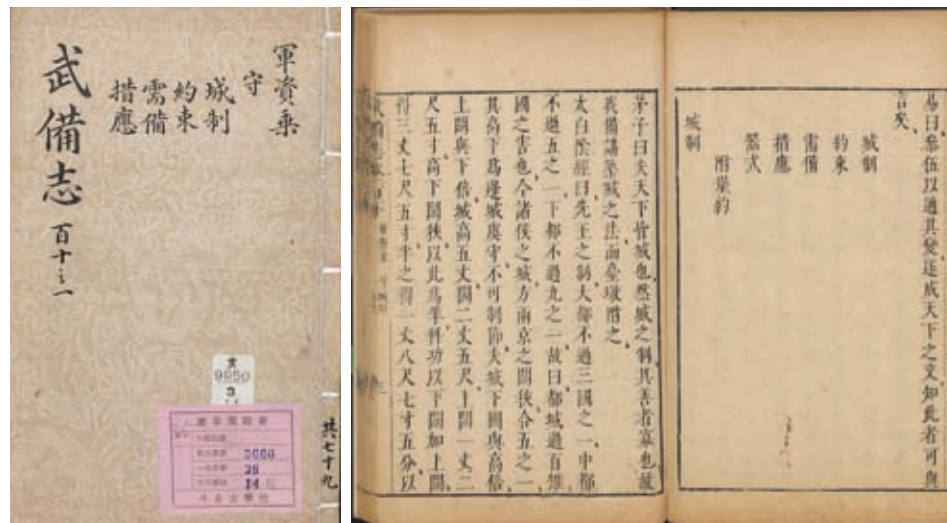 軍資乘
守
城制
約束
需備
措應
武備志 百十之一
共七十九
貴
9950
3
28
14
易曰參伍以通其變遂成天下之文知此者可與
言矣
城制
約束
需備
措應
器式
城制
茅子曰夫天下皆城也然城之制其善者寡也故
我備講築城之法而臺墩附之
太白陰經曰先王之制大都不過三國之一中都
不過五之一下都不過九之一故曰都城過百雉
國之害也今諸侯之城方兩京之闊狹合五之一
其高下爲邊城虞守不可制節夫城下闊與高倍
上闊與下倍城高五丈闊二丈五尺上闊一丈二
尺五寸高下闊狹以此爲準料功以下闊加上闊
得三丈七尺五寸半之得一丈八尺七寸五分以